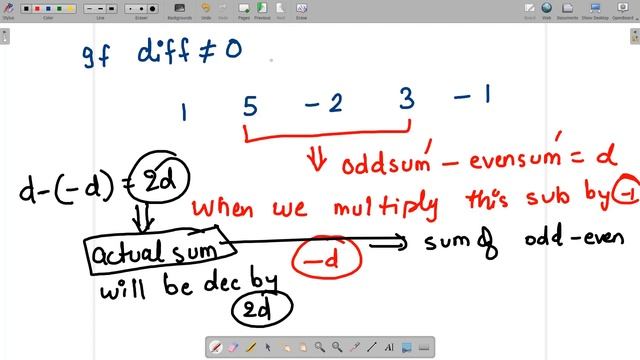 Style
Color
Line
Eraser
Backgrounds
Undo
Redo
Pages
Previous
Next
Erase
Board
Web
Documents
Show Desktop
OpenBoard
gf diff ≠ 0
1 5 -2 3 -1
⇓ oddsum' - evensum' = d
d-(-d) = 2d
when we multiply this sub by -1
actual sum ⇒ sum of odd-even
-d
will be dec by
2d